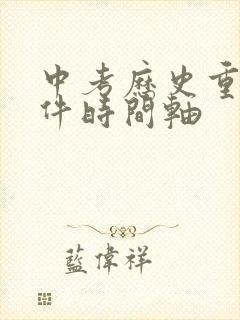 中考历史重
件時間軸
藍偉祥